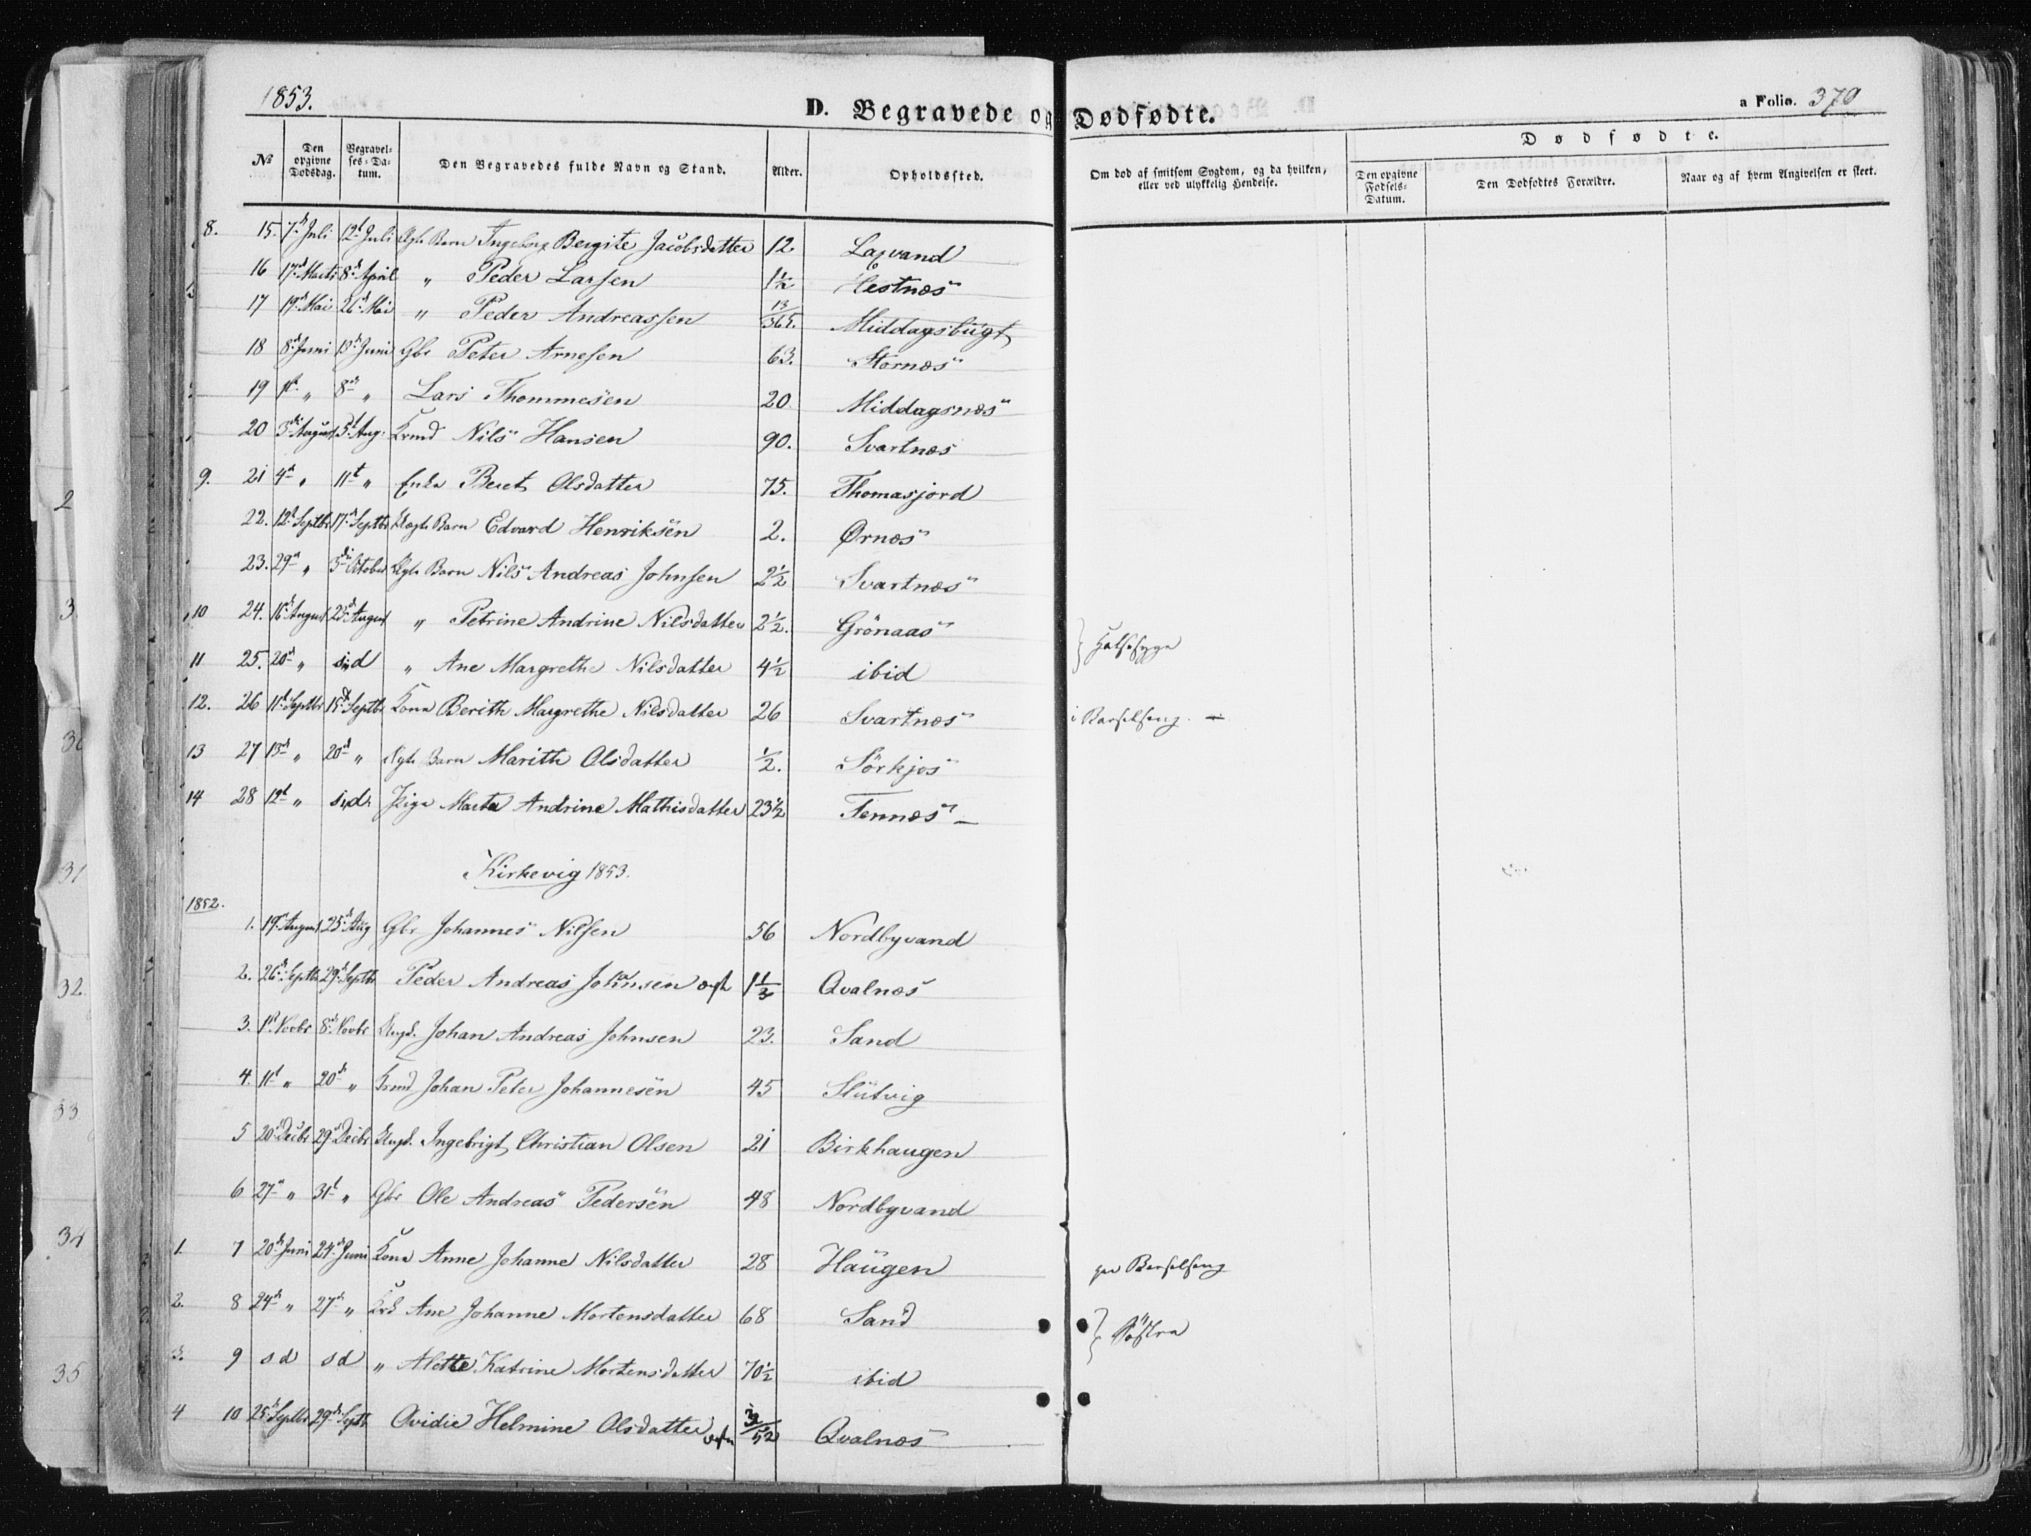 1853.
D. Begravede og Dødfødte.
a Folio. 370
Dødfødte.
№ Den opgivne Dødsdag. Begravelses-Datum. Den Begravedes fulde Navn og Stand. Alder. Opholdssted. Om død af smitsom Sygdom, og da hvilken, eller ved ulykkelig Hendelse. Den opgivne Fødsels-Datum. Den Dødfødtes Forældre. Naar og af hvem Angivelsen er skeet.
8. 15. 7de Juli 12t Juli Ægte Barn Ingeborg Bergite Jacobsdatter 12 Laxvand
16 17de Marts 8de April " Peder Larssen 1½ Hestnæs
17 19de Mai 26de Mai " Peder Andreassen 13/365. Middagsbugt
18 8de Juni 13de Juni Gbr Peter Arnesen 63. Stornæs
19 1t " 8de " Lars Thommesen 20. Middagsnæs
20 3die August 5t Aug: Krmd Nils Hansen 90. Svartnæs
9. 21 4de " 11t " Enke Beret Olsdatter 75. Thomasjord
22. 12t Septbr 17de Septbr Uægte Barn Edvard Henriksen 2. Ørnæs
23. 29de " 3die Octobr Ægte Barn Nils Andreas Johnsen 2½ Svartnæs
10 24. 16de August 25de August " Petrine Andrine Nilsdatter 2½. Grönaas } Halssyge
11 25. 20de " sd " Ane Margrethe Nilsdatter 4½ ibid
12. 26 11t Septbr 15de Septbr Kona Berith Margrethe Nilsdatter 26 Svartnæs i Barselseng. —
13 27 13de " 20de " Ægte Barn Marith Olsdatter ½. Sörkjos
14 28 12t " s.d. Pige Marta Andrine Mathisdatter 23½ Tennes —
Kirkevig 1853.
1852.
1. 19de August 25de Aug Gbr Johannes Nilsen 56 Nordbyvand
2. 26de Septbr 29de Septbr Peder Andreas Johnsen ægte 1⅓ Qvalnæs
3. 1st Novbr 8de Novbr Ungk. Johan Andreas Johnsen 23. Sand
4. 11t " 20de " Krmd Johan Peter Johannesen 45 Slutvig
5 20de Decbr 29de Decbr Ungk. Ingebrigt Christian Olsen 21 Birkhaugen
6 27de " 31t " Gbr Ole Andreas Pedersen 48 Nordbyvand
1. 7 20de Juni 24de Juni Kona Anne Johanne Nilsdatter 28 Haugen paa Barselseng
2. 8 24de " 27de " Ane Johanne Mortensdatter 68 Sand }
3. 9 sd sd " Alette Katrine Mortensdatter 70½ ibid
4 10 25de Septbr 29de Septbr Ovidie Helmine Olsdatter 3/52 Qvalnæs
2
3.
30
31
32
33
34
35